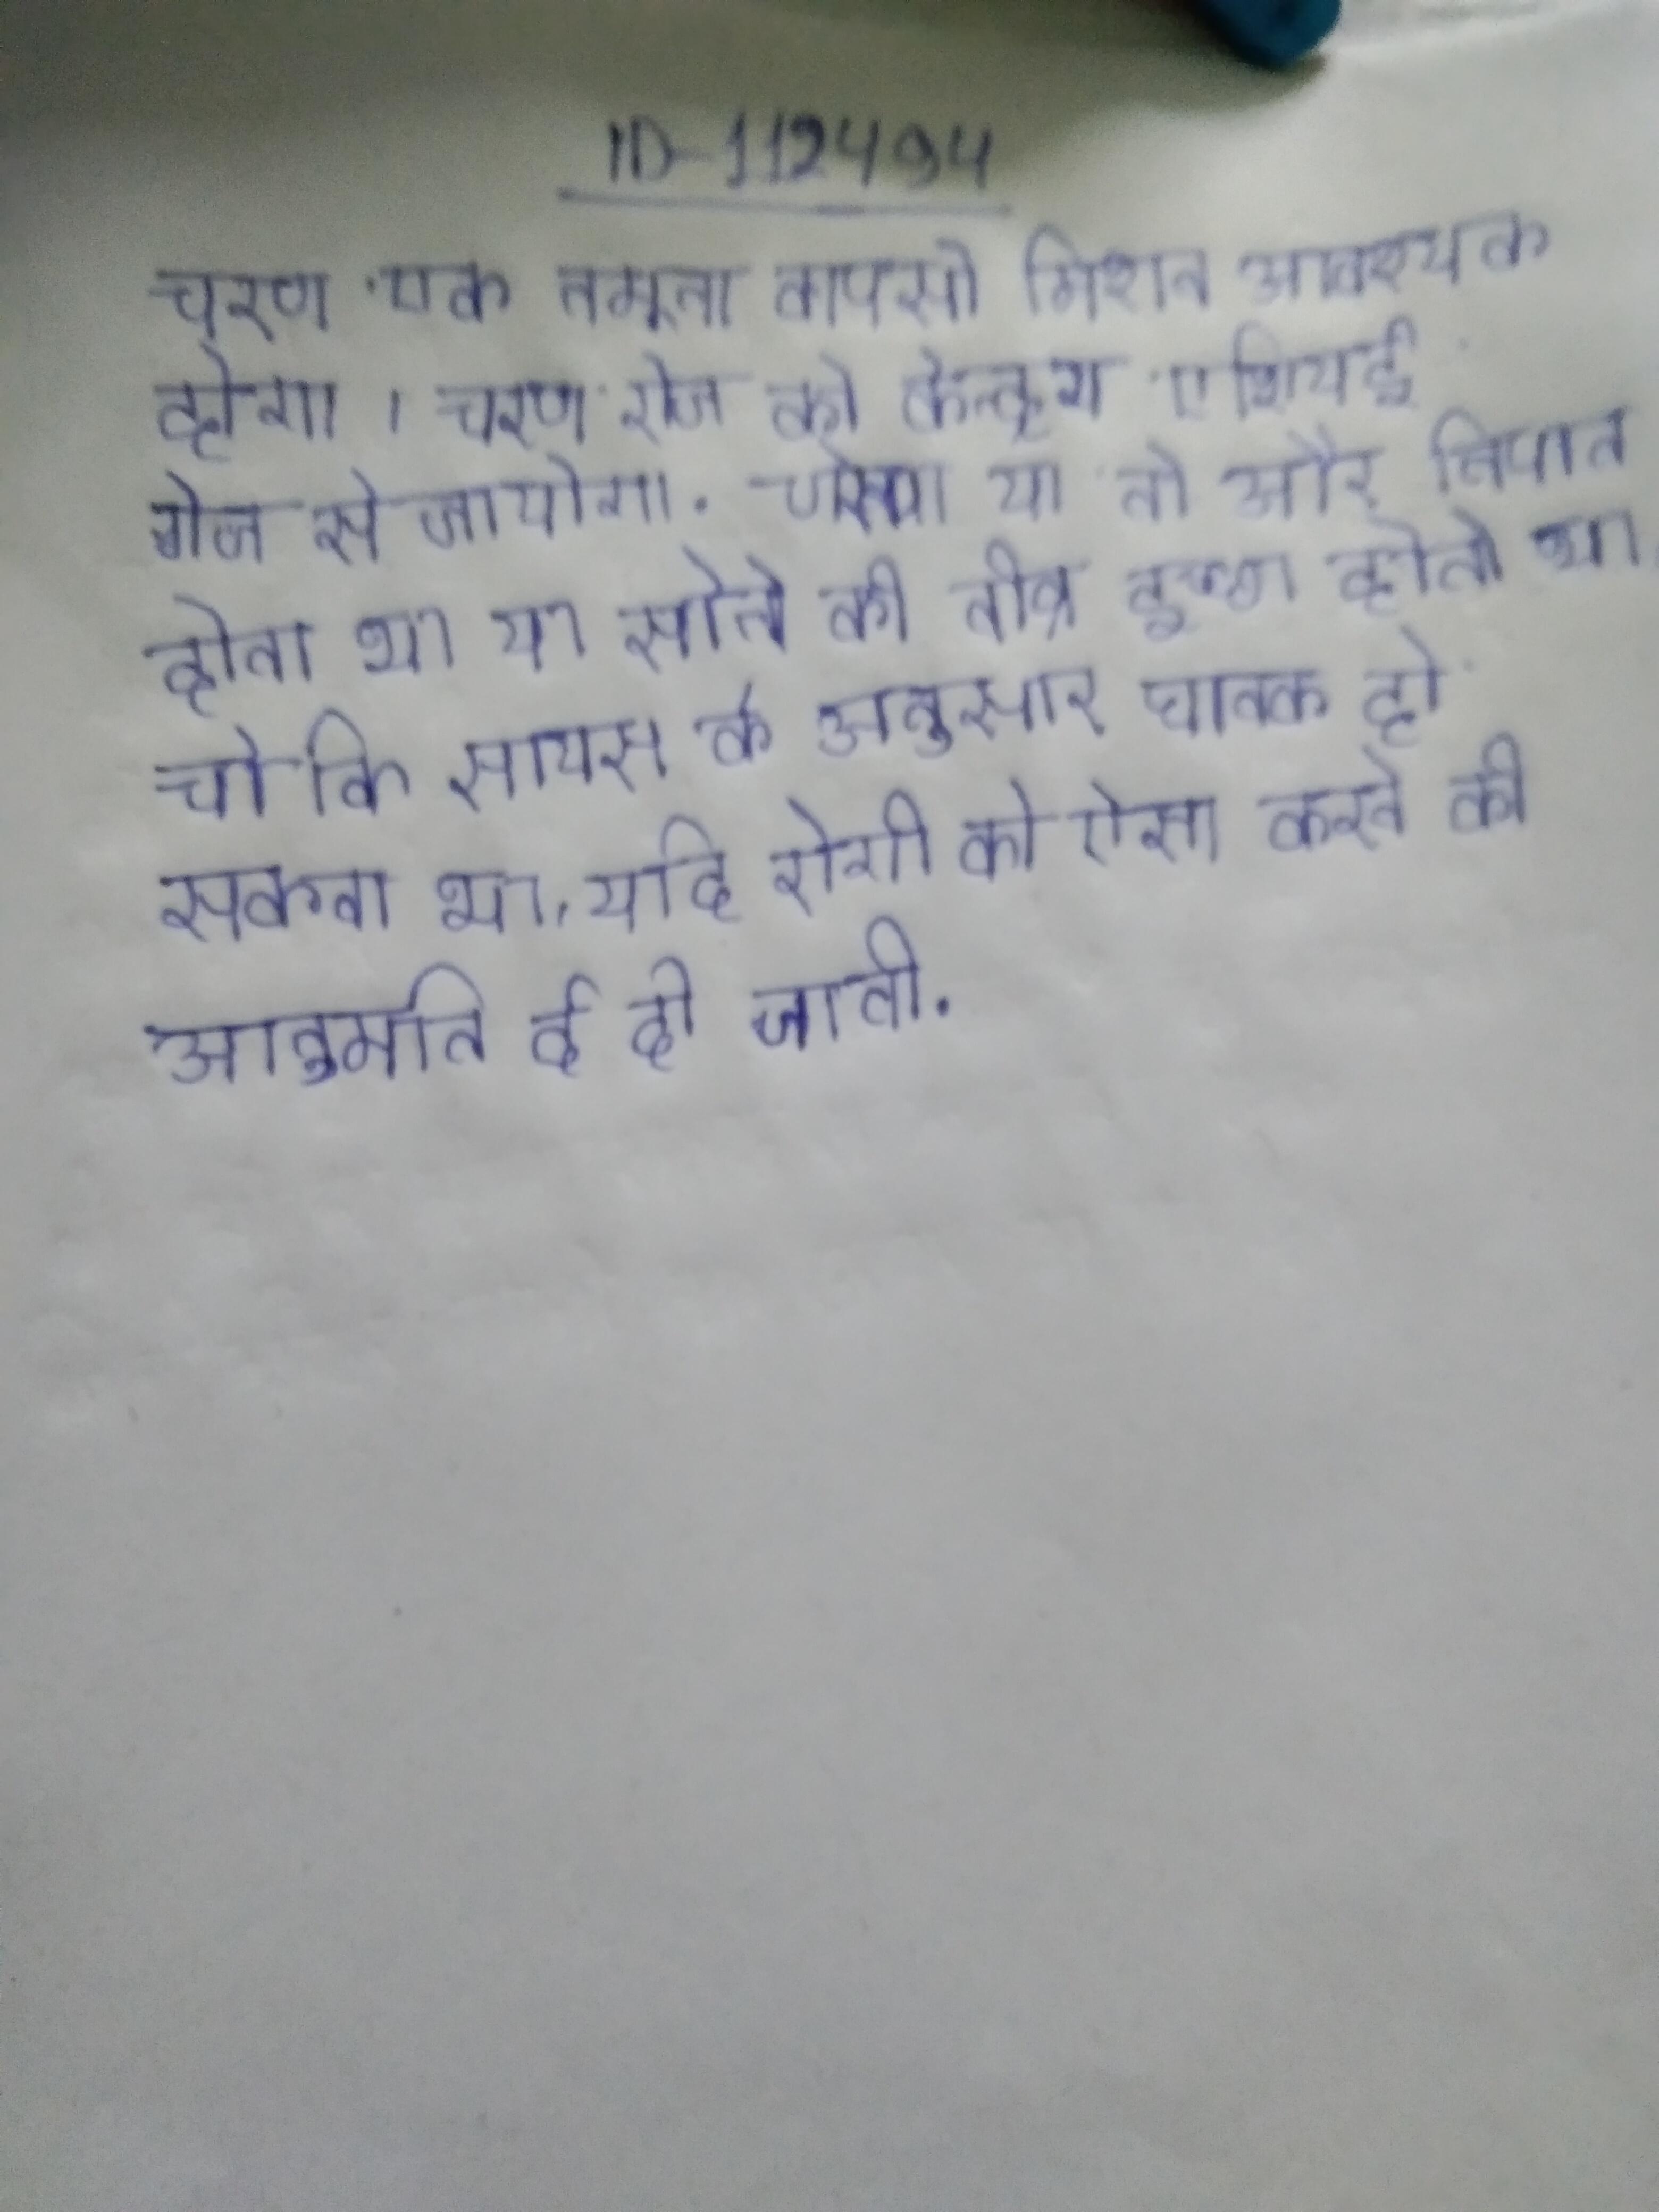 ID-112494
चरण एक नमूना वापसी मिशन आवश्यक
होगा । चरण रोज को केन्द्रीय एशियाई
गेज से जायेगा. या तो और निपात
होता था या सोने की तीव्र इच्छा होती था
चो कि सायस के अनुसार घातक हो
सकता था, यदि रोगी को ऐसा करने की
आनुमति दे दी जाती.